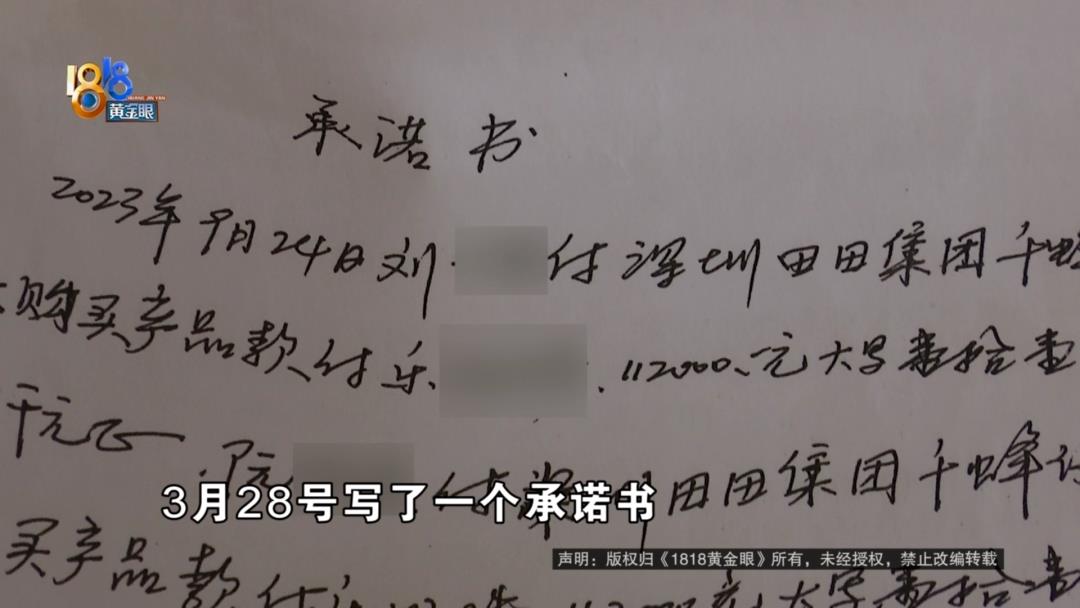 1818
HUANG JIN YAN
黄金眼
承诺书
2023年9月24日刘 付深圳田田集团千蜂
购买产品款付乐 112000.元大写壹拾壹
千元正
付深圳田田集团千蜂
3月28号写了一个承诺书
买产品款付 元大写壹拾壹
声明：版权归《1818黄金眼》所有，未经授权，禁止改编转载